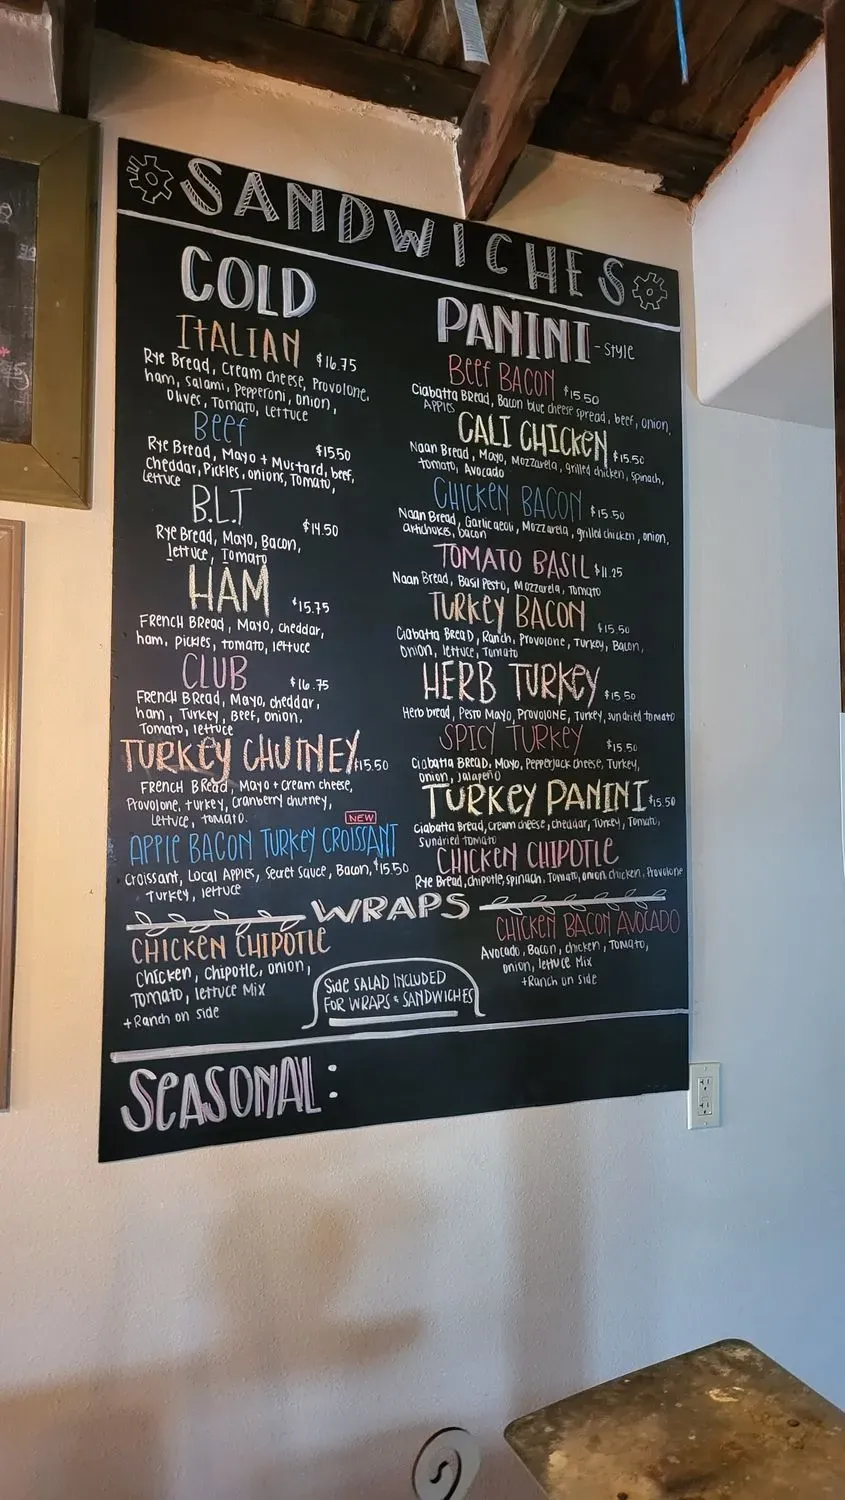 SANDWICHES
COLD
ITALIAN $16.75
Rye Bread, Cream cheese, Provolone,
ham, salami, pepperoni, onion,
Olives, Tomato, lettuce
Beef
$15.50
Rye Bread, Mayo + Mustard, beef,
Cheddar, Pickles, onions, Tomato,
lettuce
B.L.T
$14.50
Rye Bread, Mayo, Bacon,
lettuce, Tomato
HAM $15.75
FRENCH BREAD, Mayo, cheddar,
ham, pickles, tomato, lettuce
CLUB $16.75
FRENCH BREAD, Mayo, cheddar,
ham, Turkey, Beef, onion,
Tomato, lettuce
TURKEY CHUTNEY $15.50
FRENCH BREAD, Mayo + Cream cheese,
Provolone, turkey, cranberry chutney,
lettuce, tomato.
NEW
APPLE BACON TURKEY CROISSANT
Croissant, Local Apples, Secret Sauce, Bacon, $15.50
Turkey, lettuce
PANINI - STYLE
Beef BACON $15.50
Ciabatta Bread, Bacon blue cheese spread, beef, onion,
Apples
CALI CHICKEN $15.50
Naan Bread, Mayo, Mozzarela, grilled chicken, spinach,
tomato, Avocado
CHICKEN BACON $15.50
Naan Bread, Garlic aeoli, Mozzarela, grilled chicken, onion,
artichokes, bacon
TOMATO BASIL $11.25
Naan Bread, Basil Pesto, Mozzarela, Tomato
TURKEY BACON $15.50
Ciabatta BreaD, Ranch, Provolone, Turkey, Bacon,
Onion, lettuce, Tomato
HERB TURKEY $15.50
Herb bread, Pesto Mayo, PROVOLONE, Turkey, sundried tomato
SPICY TURKEY $15.50
Ciabatta BREAD, Mayo, Pepperjack cheese, Turkey,
Onion, Jalapeño
TURKEY PANINI $15.50
Ciabatta Bread, cream cheese, cheddar, Turkey, Tomato,
Sundried tomato
CHICKEN CHIPOTLE
Rye Bread, chipotle, spinach, Tomato, onion chicken, Provolone
WRAPS
CHICKEN CHIPOTLE
Chicken, Chipotle, onion,
Tomato, lettuce Mix
+Ranch on side
CHICKEN BACON AVOCADO
Avocado, Bacon, chicken, Tomato,
onion, lettuce Mix
+Ranch on side
Side SALAD INCLUDED
FOR WRAPS & SANDWICHES
SEASONAL: